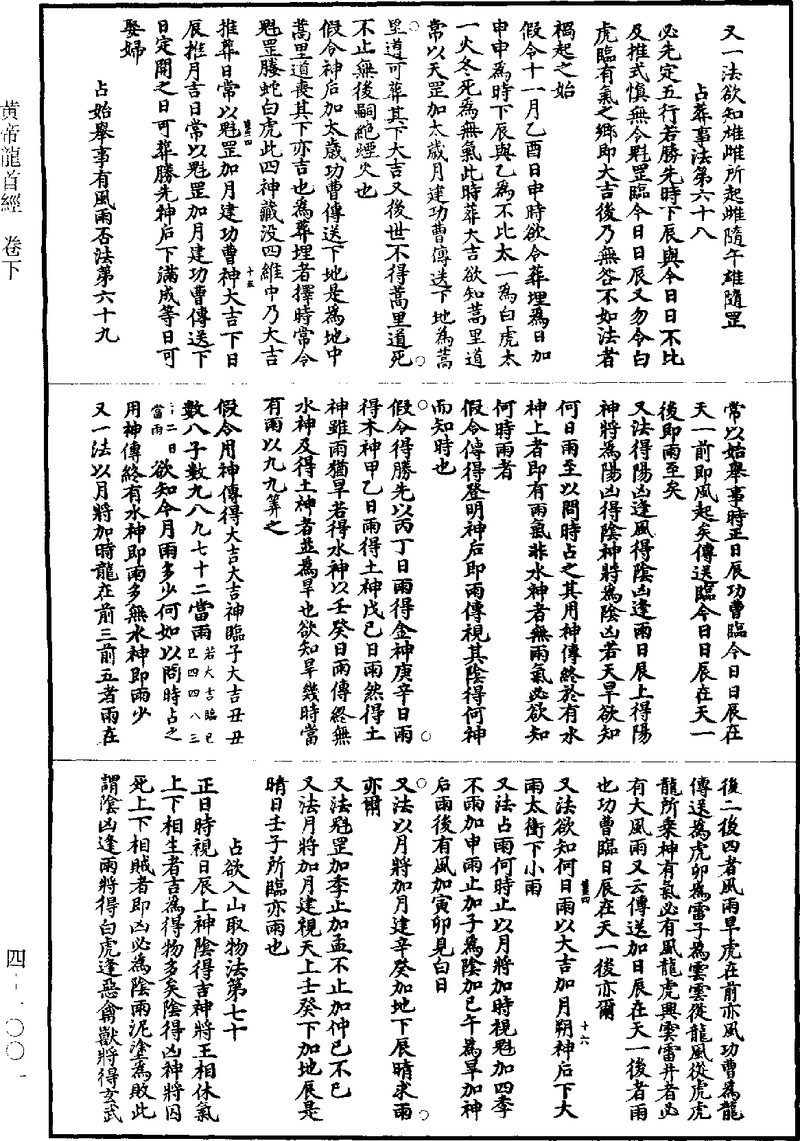 又一法欲知雄雌所起雌隨午雄隨罡
占葬事法第六十八
必先定五行若勝先時下辰與今日日不比
及推式慎無令魁罡臨今日日辰又勿令白
虎臨有氣之鄉即大吉後乃無咎不如法者
禍起之始
假令十一月乙酉日申時欲令葬埋為日加
申申為時下辰與乙為不比太一為白虎太
一火冬死為無氣此時葬大吉欲知蒿里道
常以天罡加太歲月建功曹傳送下地為蒿
里道可葬其下大吉又後世不得蒿里道死
不止無後嗣絕煙火也
假令神后加太歲功曹傳送下地是為地中
蒿里道喪其下亦吉也為葬埋者擇時常令
魁罡螣蛇白虎此四神藏没四維中乃大吉
推葬日常以魁罡加月建功曹神大吉下日
辰推月吉日常以魁罡加月建功曹傳送下
日定開之日可葬勝先神后下滿成等日可
娶婦
占始舉事有風雨否法第六十九
常以始舉事時正日辰功曹臨今日日辰在
天一前即風起矣傳送臨今日日辰在天一
後即雨至矣
又法得陽凶逢風得陰凶逢雨日辰上得陽
神將為陽凶得陰神將為陰凶若天旱欲知
何日雨至以問時占之其用神傳終於有水
神上者即有雨氣非水神者無雨氣必欲知
何時雨者
假令傳得登明神后即雨傳視其陰得何神
而知時也
假令得勝先以丙丁日雨得金神庚辛日雨
得木神甲乙日雨得土神戊己日雨然得土
神雖雨猶旱若得水神以壬癸日雨傳終無
水神及得土神者並為旱也欲知旱幾時當
有雨以九九筭之
假令用神傳得大吉大吉神臨子大吉丑丑
數八子數九八九七十二當雨若大吉臨巳
巳四四八三
十二日當雨欲知今月雨多少何如以問時占之
用神傳終有水神即雨多無水神即雨少
又一法以月將加時龍在前三前五者雨在
後二後四者風雨旱虎在前亦風功曹為龍
傳送為虎卯為雷子為雲雲從龍風從虎虎
龍所乘神有氣必有風龍虎與雲雷并者必
有大風雨又云傳送加日辰在天一後者雨
也功曹臨日辰在天一後亦爾
又法欲知何日雨以大吉加月朔神后下大
雨太衝下小雨
又法占雨何時止以月將加時視魁加四季
不雨加申雨止加子為陰加巳午為旱加神
后雨後有風加寅卯見白日
又法以月將加月建辛癸加地下辰時求雨
亦爾
又法魁罡加季止加孟不止加仲已不已
又法月將加月建視天上壬癸下加地辰是
晴日壬子所臨亦雨也
占欲入山取物法第七十
正日時視日辰上神陰得吉神將王相休氣
上下相生者吉為得物多矣陰得凶神將囚
死上下相賊者即凶必為陰雨泥塗為敗此
謂陰凶逢雨將得白虎逢惡禽獸將得玄武
黄帝龍首經 卷下
四-一〇〇一